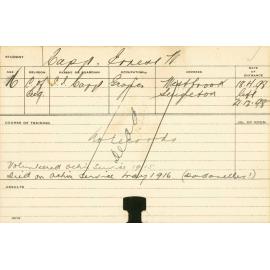 STUDENT
Capp. Ernest W
AGE RELIGION PARENT OR GUARDIAN OCCUPATION ADDRESS DATE OF ENTRANCE
16 C of Eng J. J. Capp Grazier Westbrook Singleton 18.4.98 left 21.12.98
COURSE OF TRAINING
DEAD
Volunteered active service 1915
Died on active service May 1916 (Dardanelles!)
RESULTS